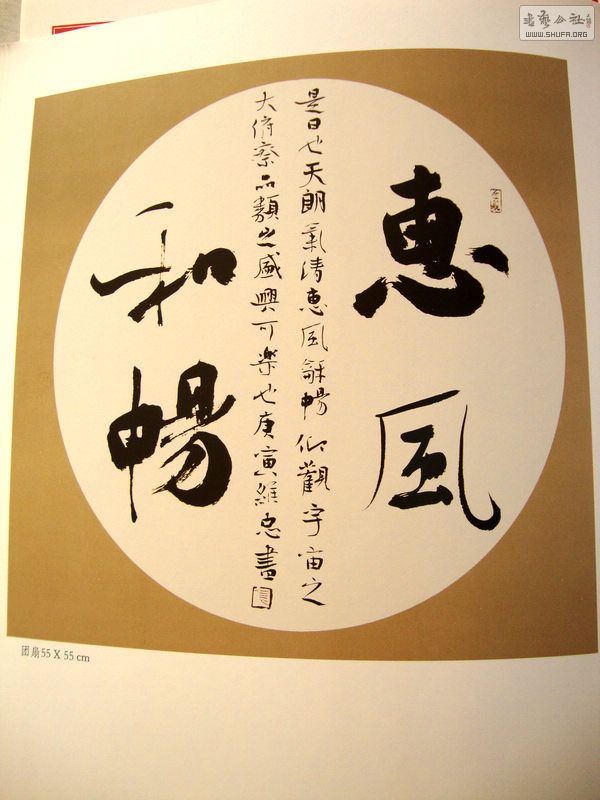 書藝公社
WWW.SHUFA.ORG
惠風
是日也天朗氣清惠風龢暢仰觀宇宙之
大俯察品類之盛興可樂也庚寅維忠書
和暢
团扇55 X 55 cm